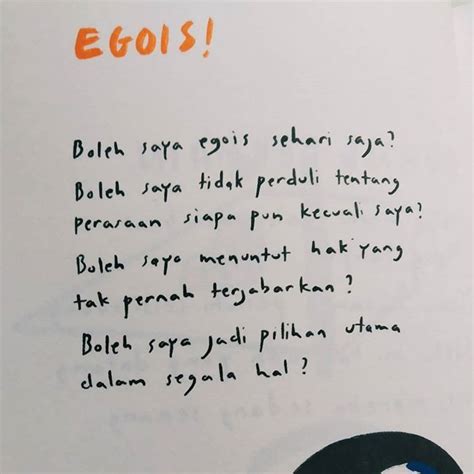 EGOIS!
Boleh saya egois sehari saja?
Boleh saya tidak perduli tentang
perasaan siapa pun kecuali saya?
Boleh saya menuntut hak yang
tak pernah terjabarkan?
Boleh saya jadi pilihan utama
dalam segala hal?